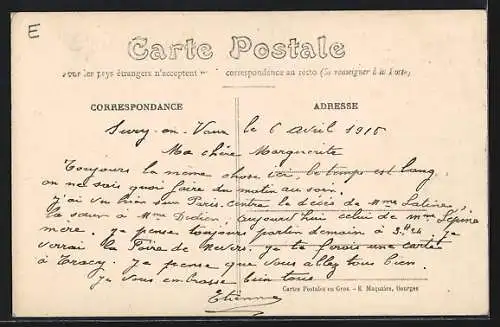 E
Carte Postale
les pays étrangers n'acceptent correspondance au recto (Se renseigner à la Poste)
CORRESPONDANCE ADRESSE
Sury-en-Vaux le 6 Avril 1915
Ma chère Marguerite
Toujours la même chose ici, le temps est long,
on ne sait quoi faire du matin au soir.
J'ai vu hier sur Paris-Centre le décès de Mme
la sœur à Mme Didier, aujourd'hui celui de Mme
mère. je pense toujours partir demain à je
verrai la Foire de Nevers. je te ferais une carte
à Tracy. je pense que vous allez tous bien.
je vous embrasse bien tous.
Etienne
Cartes Postales en Gros. - E. Maquaire, Bourges